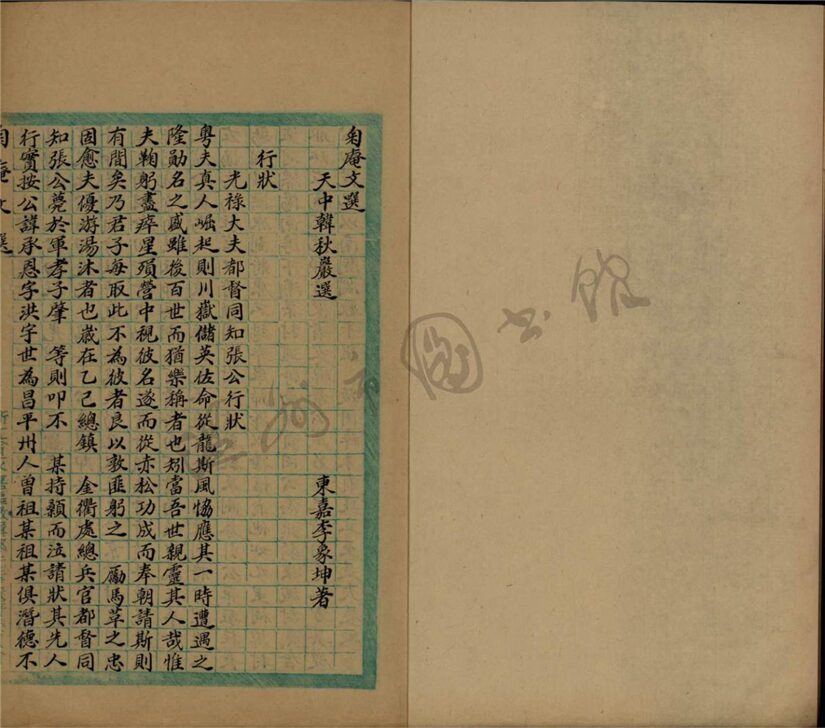 匊庵文選
天中韓秋巖選
東嘉李象坤著
行狀
光祿大夫都督同知張公行狀
粵夫真人崛起則川嶽儲英佐命從龍斯風恊應其一時遭遇之
隆勛名之盛雖後百世而猶樂稱者也矧當吾世親靈其人哉惟
夫鞠躬盡瘁星殞營中視彼名遂而從赤松功成而奉朝請斯則
有間矣乃君子每取此不為彼者良以敦匪躬之 勵馬革之忠
固愈夫優游湯沐者也嵗在乙己總鎮 金衢處總兵官都督同
知張公薨於軍孝子肇 等則叩不 某持顙而泣請狀其先人
行實按公諱承恩字洪宇世為昌平州人曾祖某祖某俱潛德不
匊庵文選
溫州市圖書館